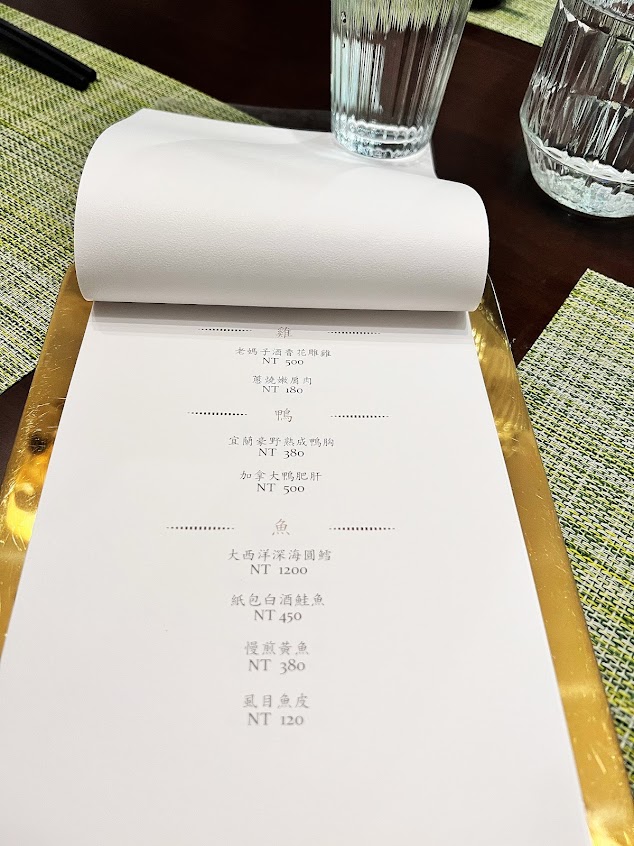 雞
老媽子酒香花雕雞
NT 500
蔥燒嫩肩肉
NT 180
鴨
宜蘭豪野熟成鴨胸
NT 380
加拿大鴨肥肝
NT 500
魚
大西洋深海圓鱈
NT 1200
紙包白酒鮭魚
NT 450
慢煎黃魚
NT 380
虱目魚皮
NT 120